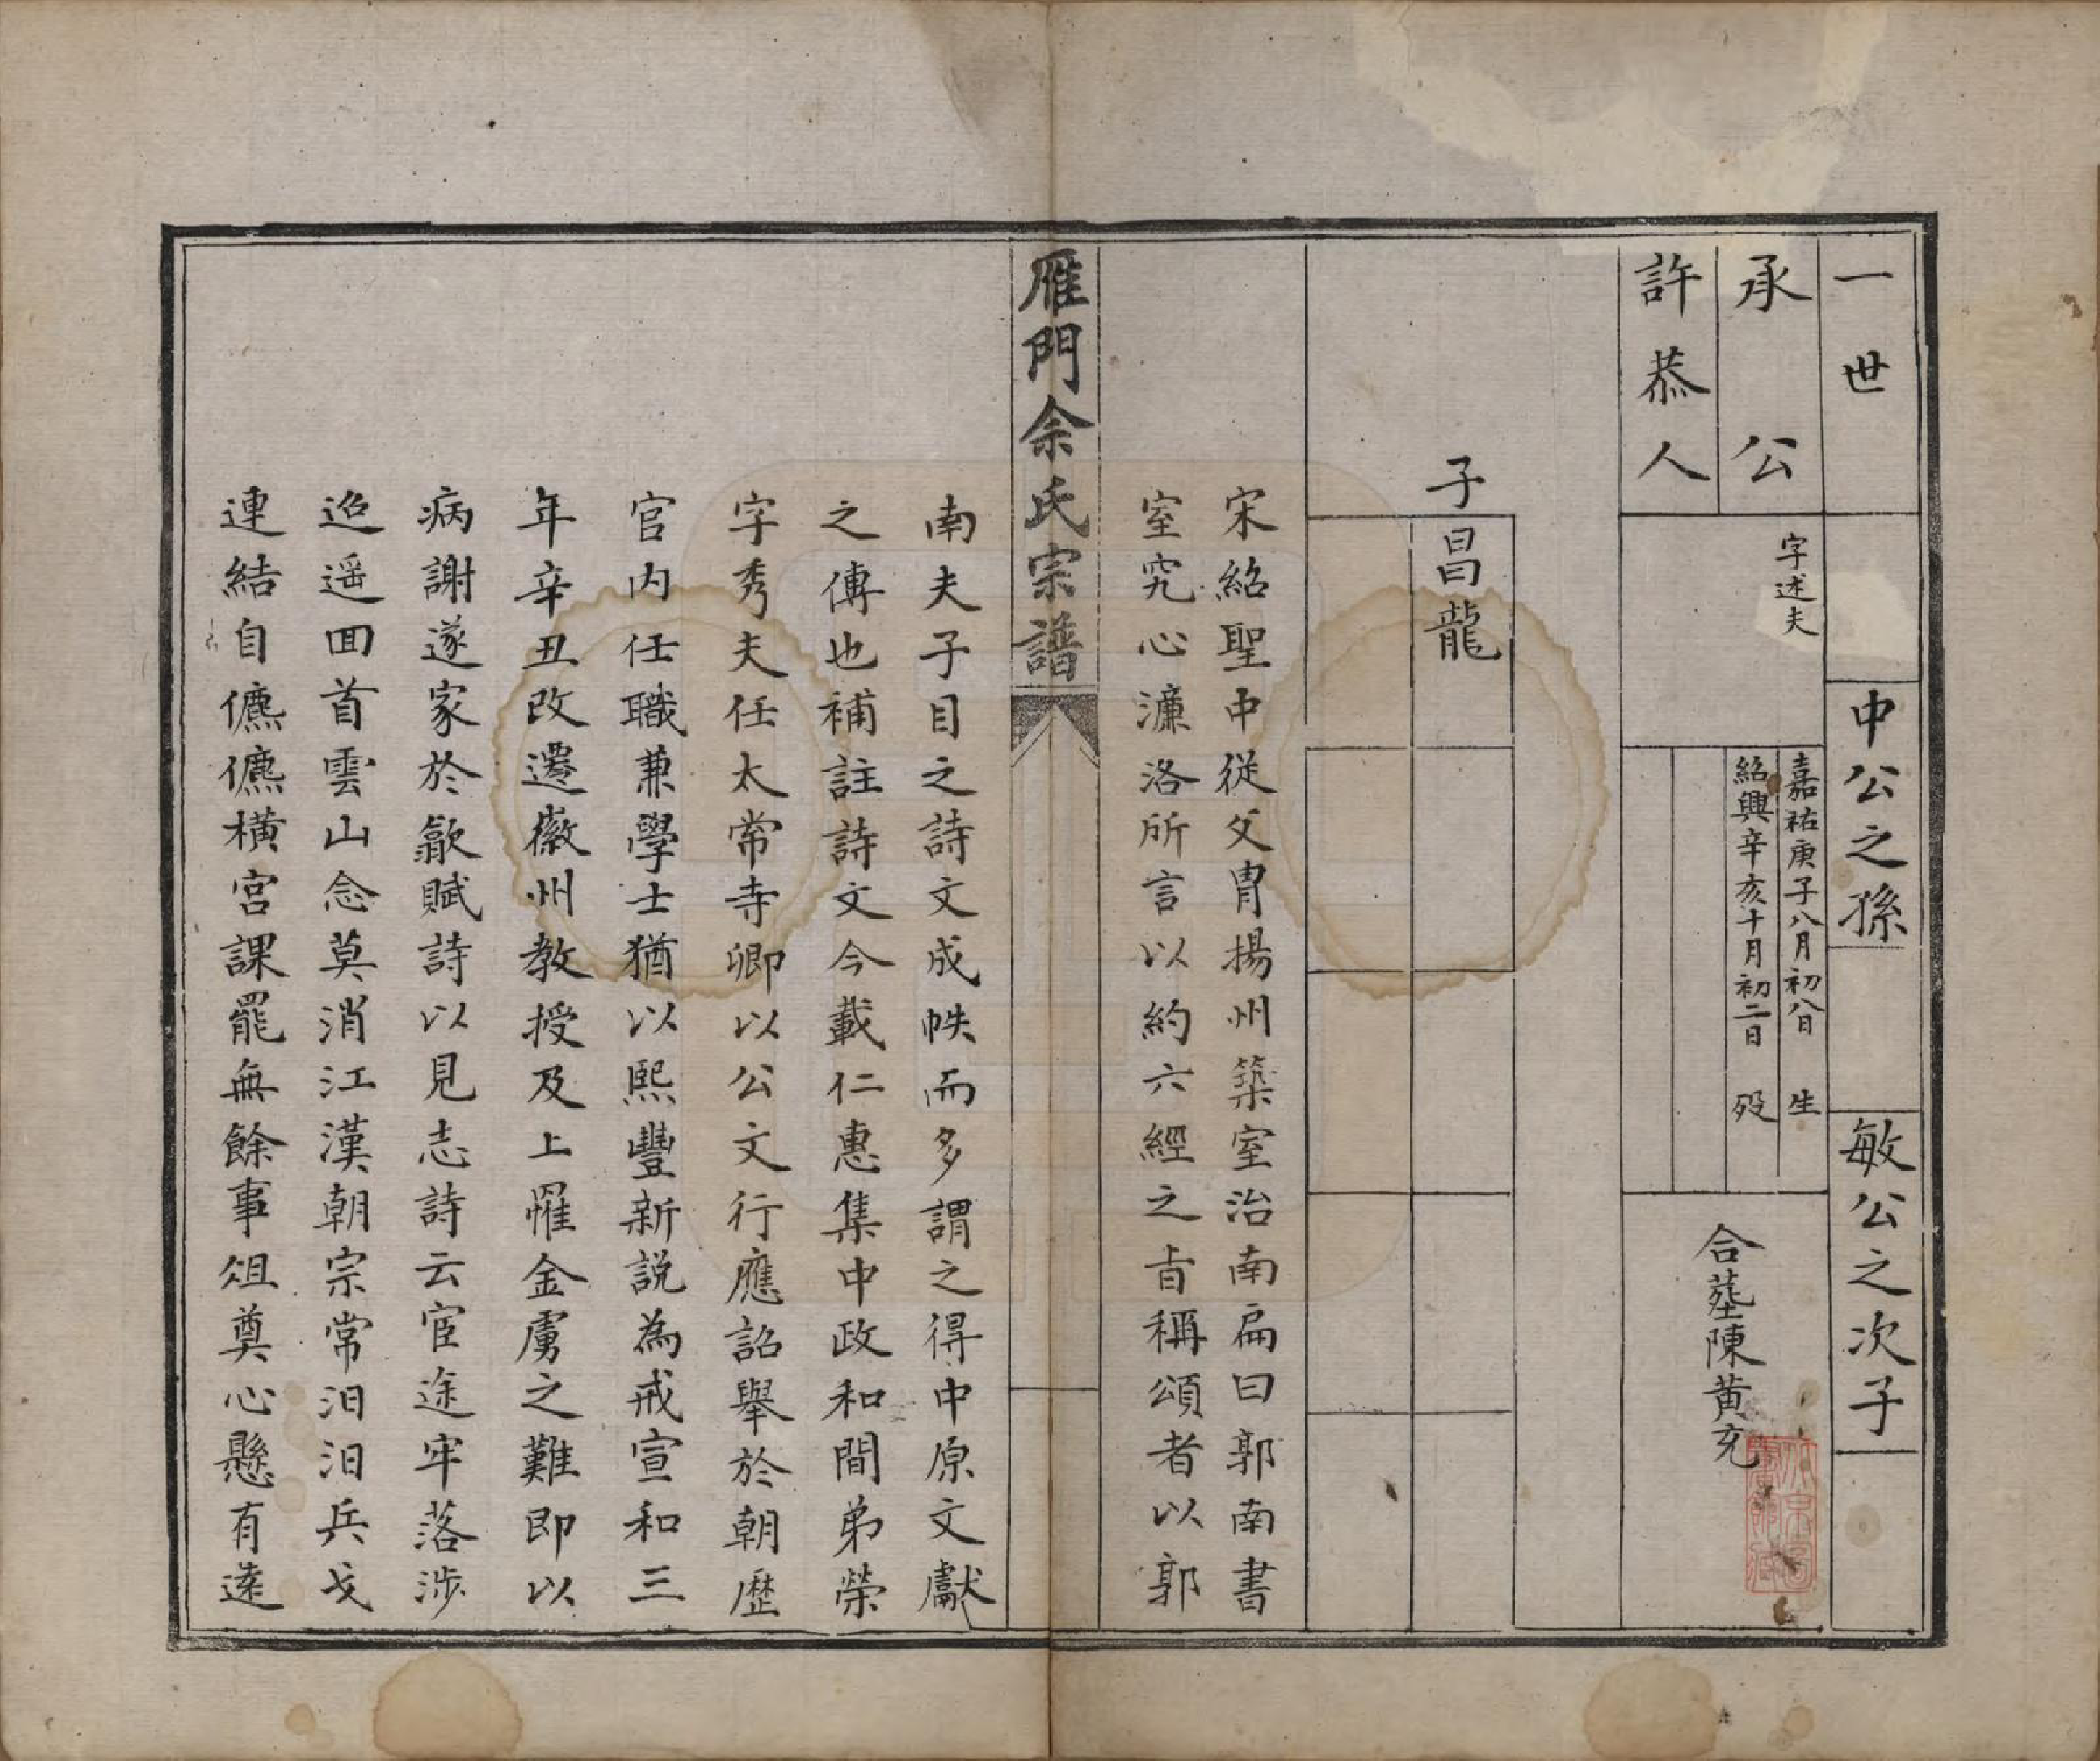 一世
中公之孫
敏公之次子
承公
字述夫
嘉祐庚子八月初八日生
紹興辛亥十月初二日歿
許恭人
合塟陳黄充
子昌龍
宋紹聖中從父胄揚州築室治南扁曰郭南書
室究心濂洛所言以約六經之旨稱頌者以郭
雁門佘氏宗譜
南夫子目之詩文成帙而多謂之得中原文獻
之傳也補註詩文今載仁惠集中政和間弟榮
字秀夫任太常寺卿以公文行應詔舉於朝歷
官内任職兼學士猶以熙豐新説為戒宣和三
年辛丑改遷徽州教授及上罹金虜之難即以
病謝遂家於歙賦詩以見志詩云宦途牢落涉
迢遥囬首雲山念莫消江漢朝宗常汩汩兵戈
連結自儦儦横宫課罷無餘事俎奠心懸有逺